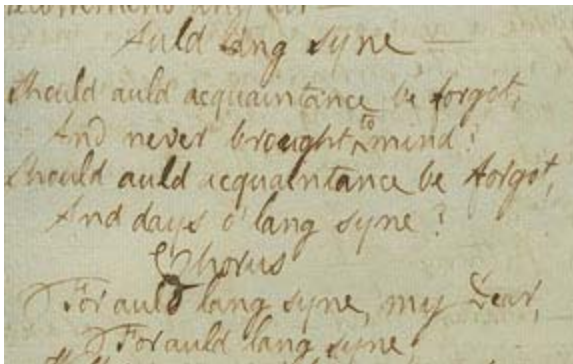 Auld lang syne —
Should auld acquaintance be forgot,
And never brought to mind?
Should auld acquaintance be forgot,
And days o' lang syne?
Chorus
For auld lang syne, my Dear,
For auld lang syne